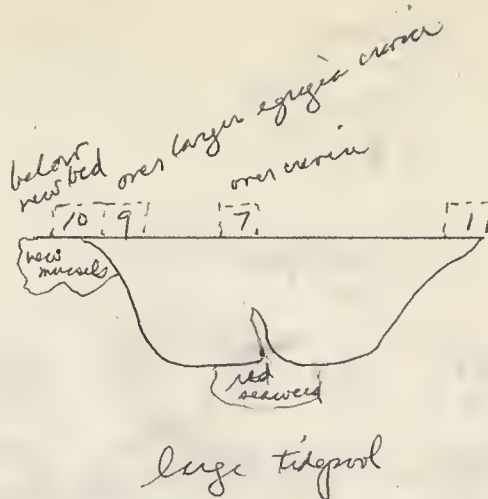 below
new bed
over larger egregia crevice
over crevice
10 9 7 1
new
mussels
red
seaweed
large tidepool